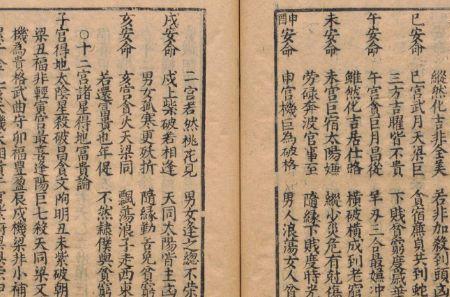 縱然化吉非全美　若非加殺到頭凶
巳安命　巳宮武月天梁巨　貪宿廉貞共到蛇
三方吉曜皆不貴　下賤貧窮度歲華
午安命　午宮貪巨月昌從　羊刃三合最嫌沖
雖然化吉居仕路　橫破橫成到老窮
未安命　未宮巨宿太陽嫌　縱少災危有剋傷
勞碌奔波官事至　隨緣下賤度時光
申安命　申宮機巨為破格　男人浪蕩女人貧
二宮若然桃花見　男女逢之總不榮
戌安命　戌上紫破若相逢　天同太陽皆主凶
男女孤寒更夭折　隨緣勤苦免貧窮
亥安命　亥宮貪火天梁同　飄蕩浪子走西東
若還富貴也年促　不然隸僕與貧窮
○十二宮諸星得地富貴論
子宮得地太陰星殺破昌貪文曲明丑未紫破朝
梁丑福非輕寅宮最喜逢陽巨七殺天同梁又
機為貴格武曲守卯福豐盈辰戌機梁非小補